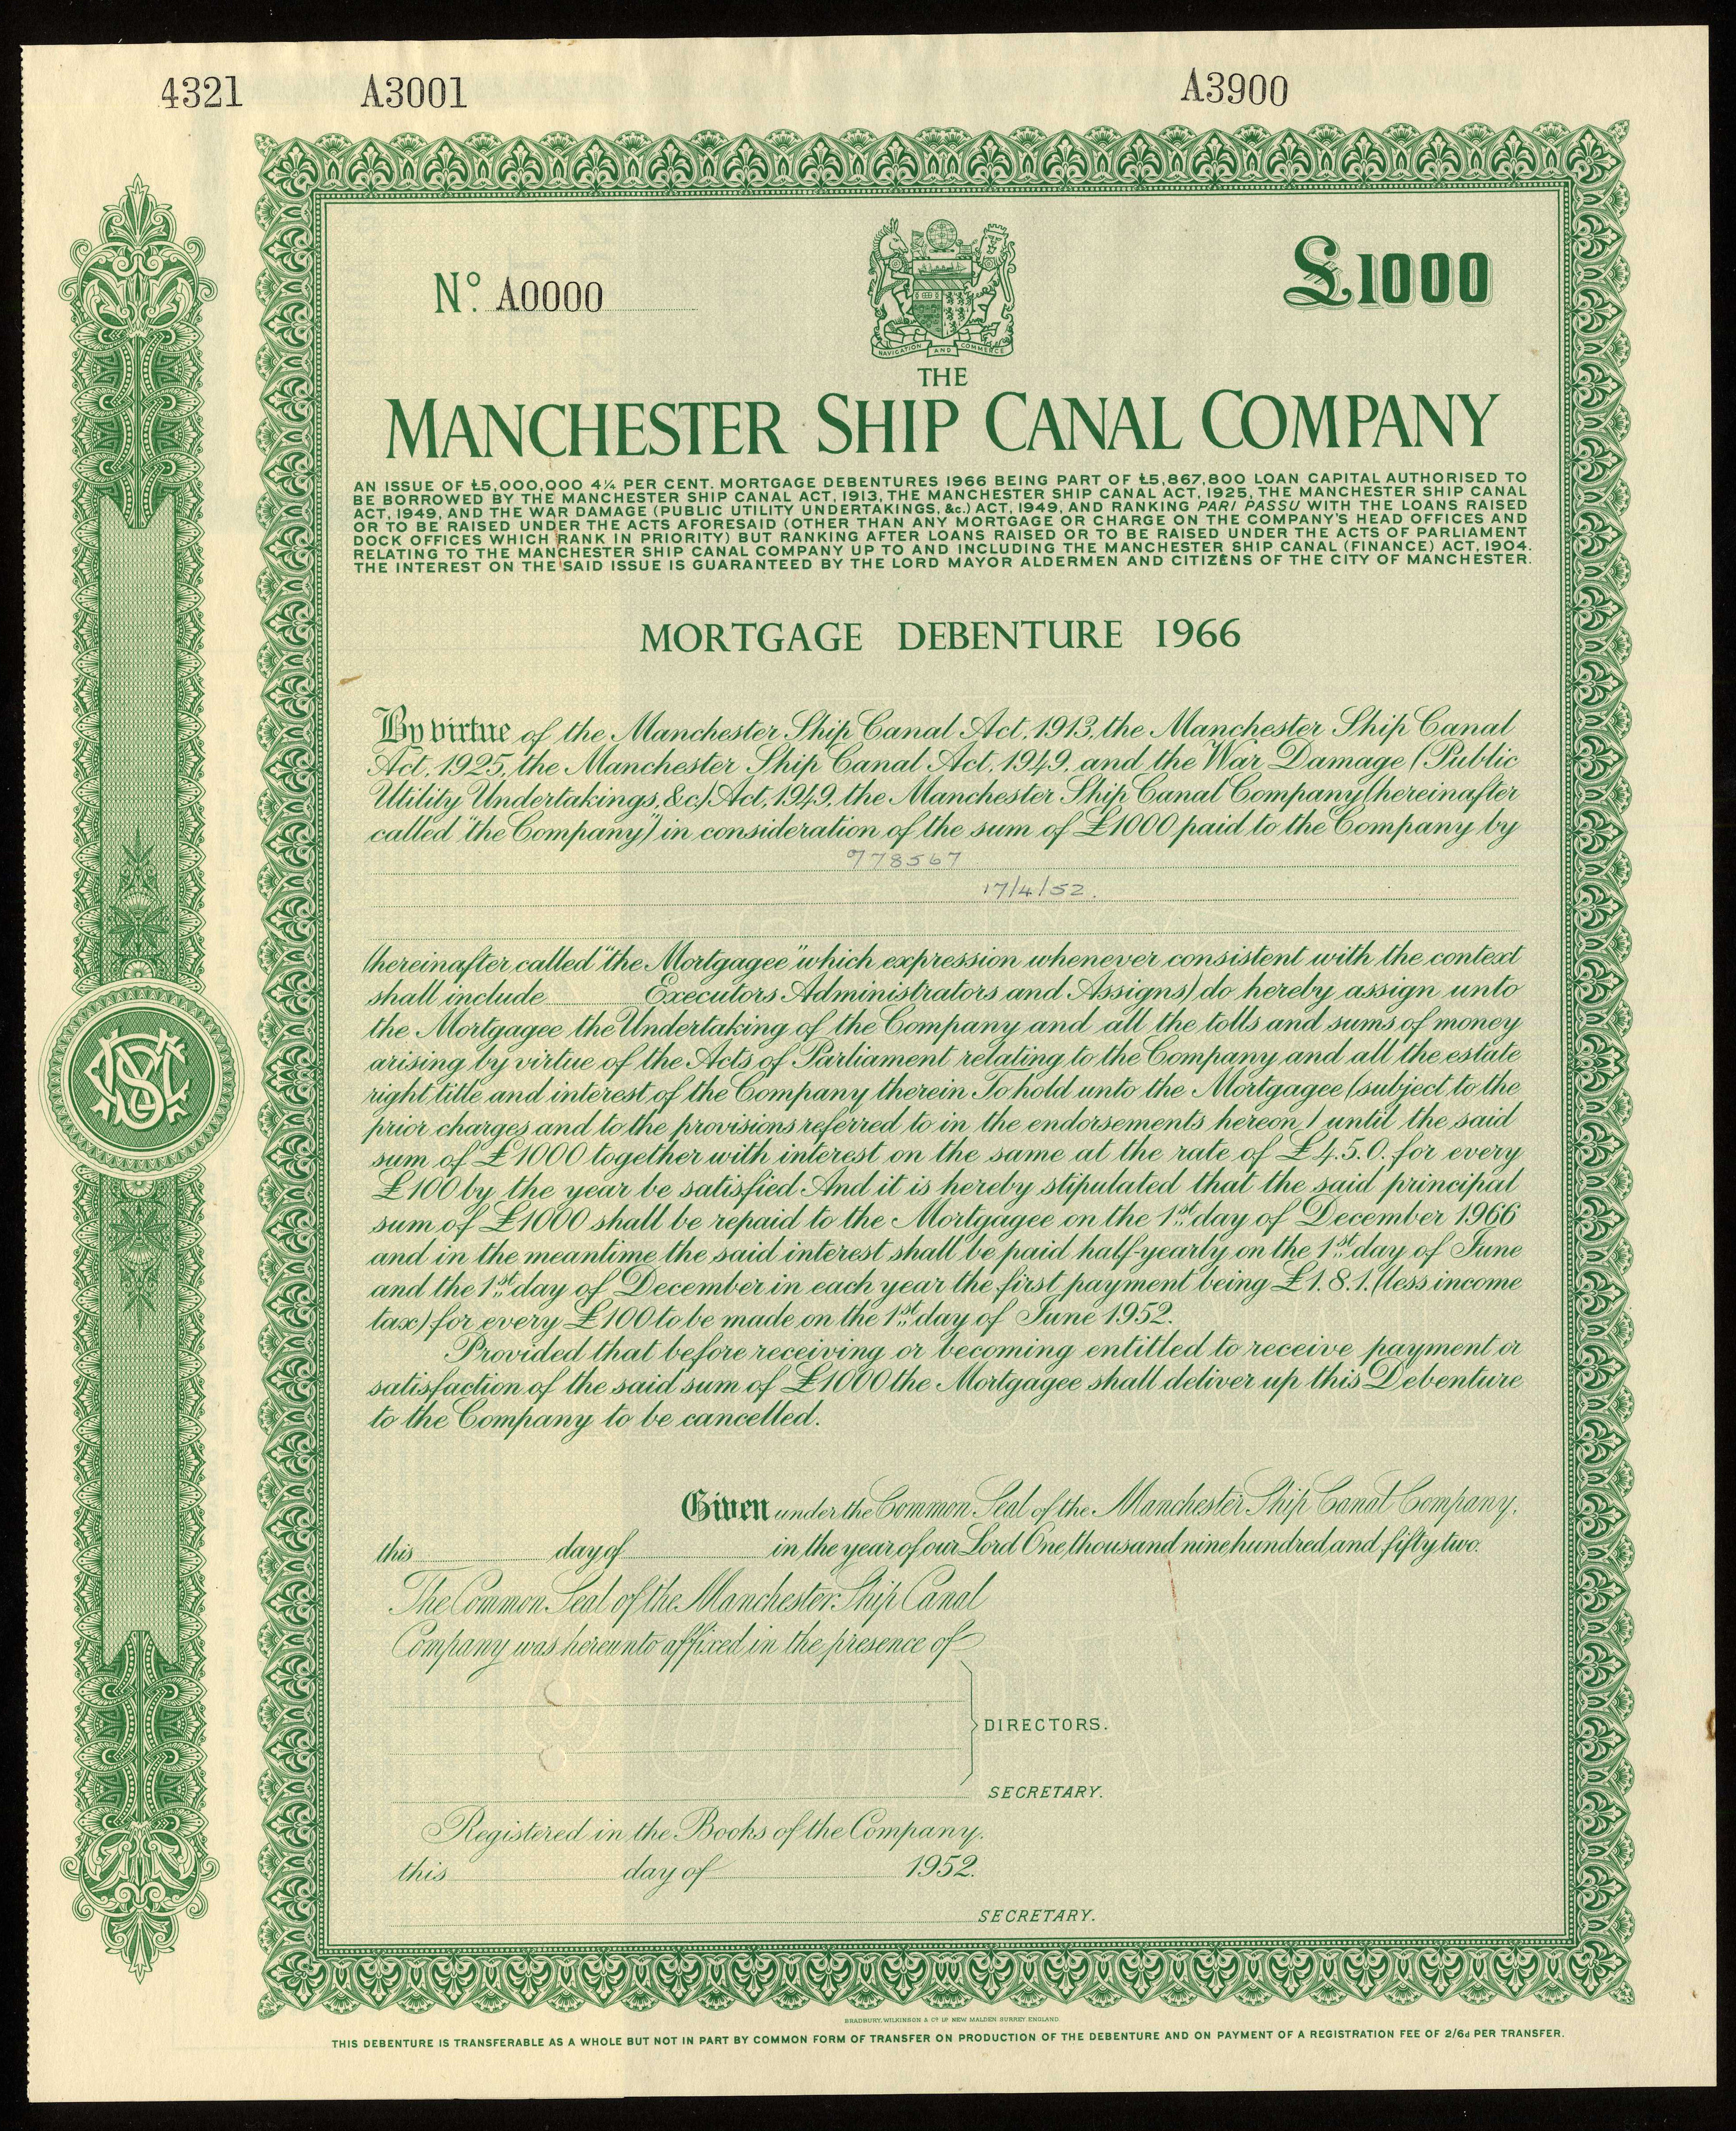 4321 A3001 A3900
Nº. A0000
£1000
NAVIGATION AND COMMERCE
THE
MANCHESTER SHIP CANAL COMPANY
AN ISSUE OF £5,000,000 4¼ PER CENT. MORTGAGE DEBENTURES 1966 BEING PART OF £5,867,800 LOAN CAPITAL AUTHORISED TO
BE BORROWED BY THE MANCHESTER SHIP CANAL ACT, 1913, THE MANCHESTER SHIP CANAL ACT, 1925, THE MANCHESTER SHIP CANAL
ACT, 1949, AND THE WAR DAMAGE (PUBLIC UTILITY UNDERTAKINGS, &c.) ACT, 1949, AND RANKING PARI PASSU WITH THE LOANS RAISED
OR TO BE RAISED UNDER THE ACTS AFORESAID (OTHER THAN ANY MORTGAGE OR CHARGE ON THE COMPANY'S HEAD OFFICES AND
DOCK OFFICES WHICH RANK IN PRIORITY) BUT RANKING AFTER LOANS RAISED OR TO BE RAISED UNDER THE ACTS OF PARLIAMENT
RELATING TO THE MANCHESTER SHIP CANAL COMPANY UP TO AND INCLUDING THE MANCHESTER SHIP CANAL (FINANCE) ACT, 1904.
THE INTEREST ON THE SAID ISSUE IS GUARANTEED BY THE LORD MAYOR ALDERMEN AND CITIZENS OF THE CITY OF MANCHESTER.
MORTGAGE DEBENTURE 1966
By virtue of the Manchester Ship Canal Act, 1913, the Manchester Ship Canal
Act, 1925, the Manchester Ship Canal Act, 1949, and the War Damage (Public
Utility Undertakings, &c.) Act, 1949, the Manchester Ship Canal Company (hereinafter
called "the Company") in consideration of the sum of £1000 paid to the Company by
778567
17/4/52.
(hereinafter called "the Mortgagee" which expression whenever consistent with the context
shall include Executors Administrators and Assigns) do hereby assign unto
the Mortgagee the Undertaking of the Company and all the tolls and sums of money
arising by virtue of the Acts of Parliament relating to the Company and all the estate
right title and interest of the Company therein To hold unto the Mortgagee (subject to the
prior charges and to the provisions referred to in the endorsements hereon) until the said
sum of £1000 together with interest on the same at the rate of £4.5.0. for every
£100 by the year be satisfied And it is hereby stipulated that the said principal
sum of £1000 shall be repaid to the Mortgagee on the 1st day of December 1966
and in the meantime the said interest shall be paid half-yearly on the 1st day of June
and the 1st day of December in each year the first payment being £1.8.1. (less income
tax) for every £100 to be made on the 1st day of June 1952.
Provided that before receiving or becoming entitled to receive payment or
satisfaction of the said sum of £1000 the Mortgagee shall deliver up this Debenture
to the Company to be cancelled.
Given under the Common Seal of the Manchester Ship Canal Company,
this day of in the year of our Lord One thousand nine hundred and fifty two.
The Common Seal of the Manchester Ship Canal
Company was hereunto affixed in the presence of
DIRECTORS.
SECRETARY.
Registered in the Books of the Company.
this day of 1952.
SECRETARY.
BRADBURY, WILKINSON & Cº Lᴰ NEW MALDEN SURREY ENGLAND.
THIS DEBENTURE IS TRANSFERABLE AS A WHOLE BUT NOT IN PART BY COMMON FORM OF TRANSFER ON PRODUCTION OF THE DEBENTURE AND ON PAYMENT OF A REGISTRATION FEE OF 2/6d PER TRANSFER.